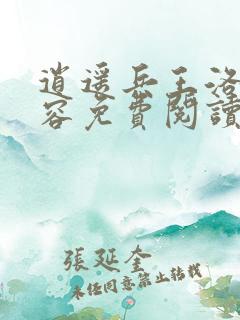 逍遥兵王洛
容免費閱讀
張延奎
未经同意禁止转载